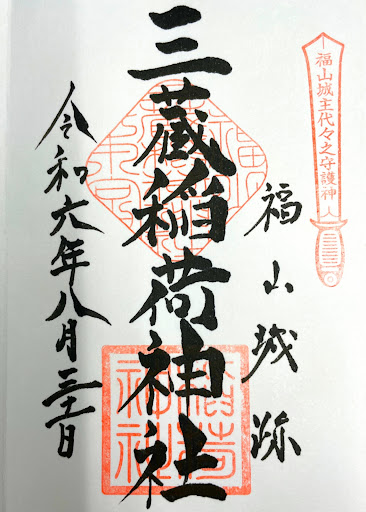 福山城主代々之守護神
福山城跡
三蔵稲荷神社
稲荷
神社
令和六年八月三十一日